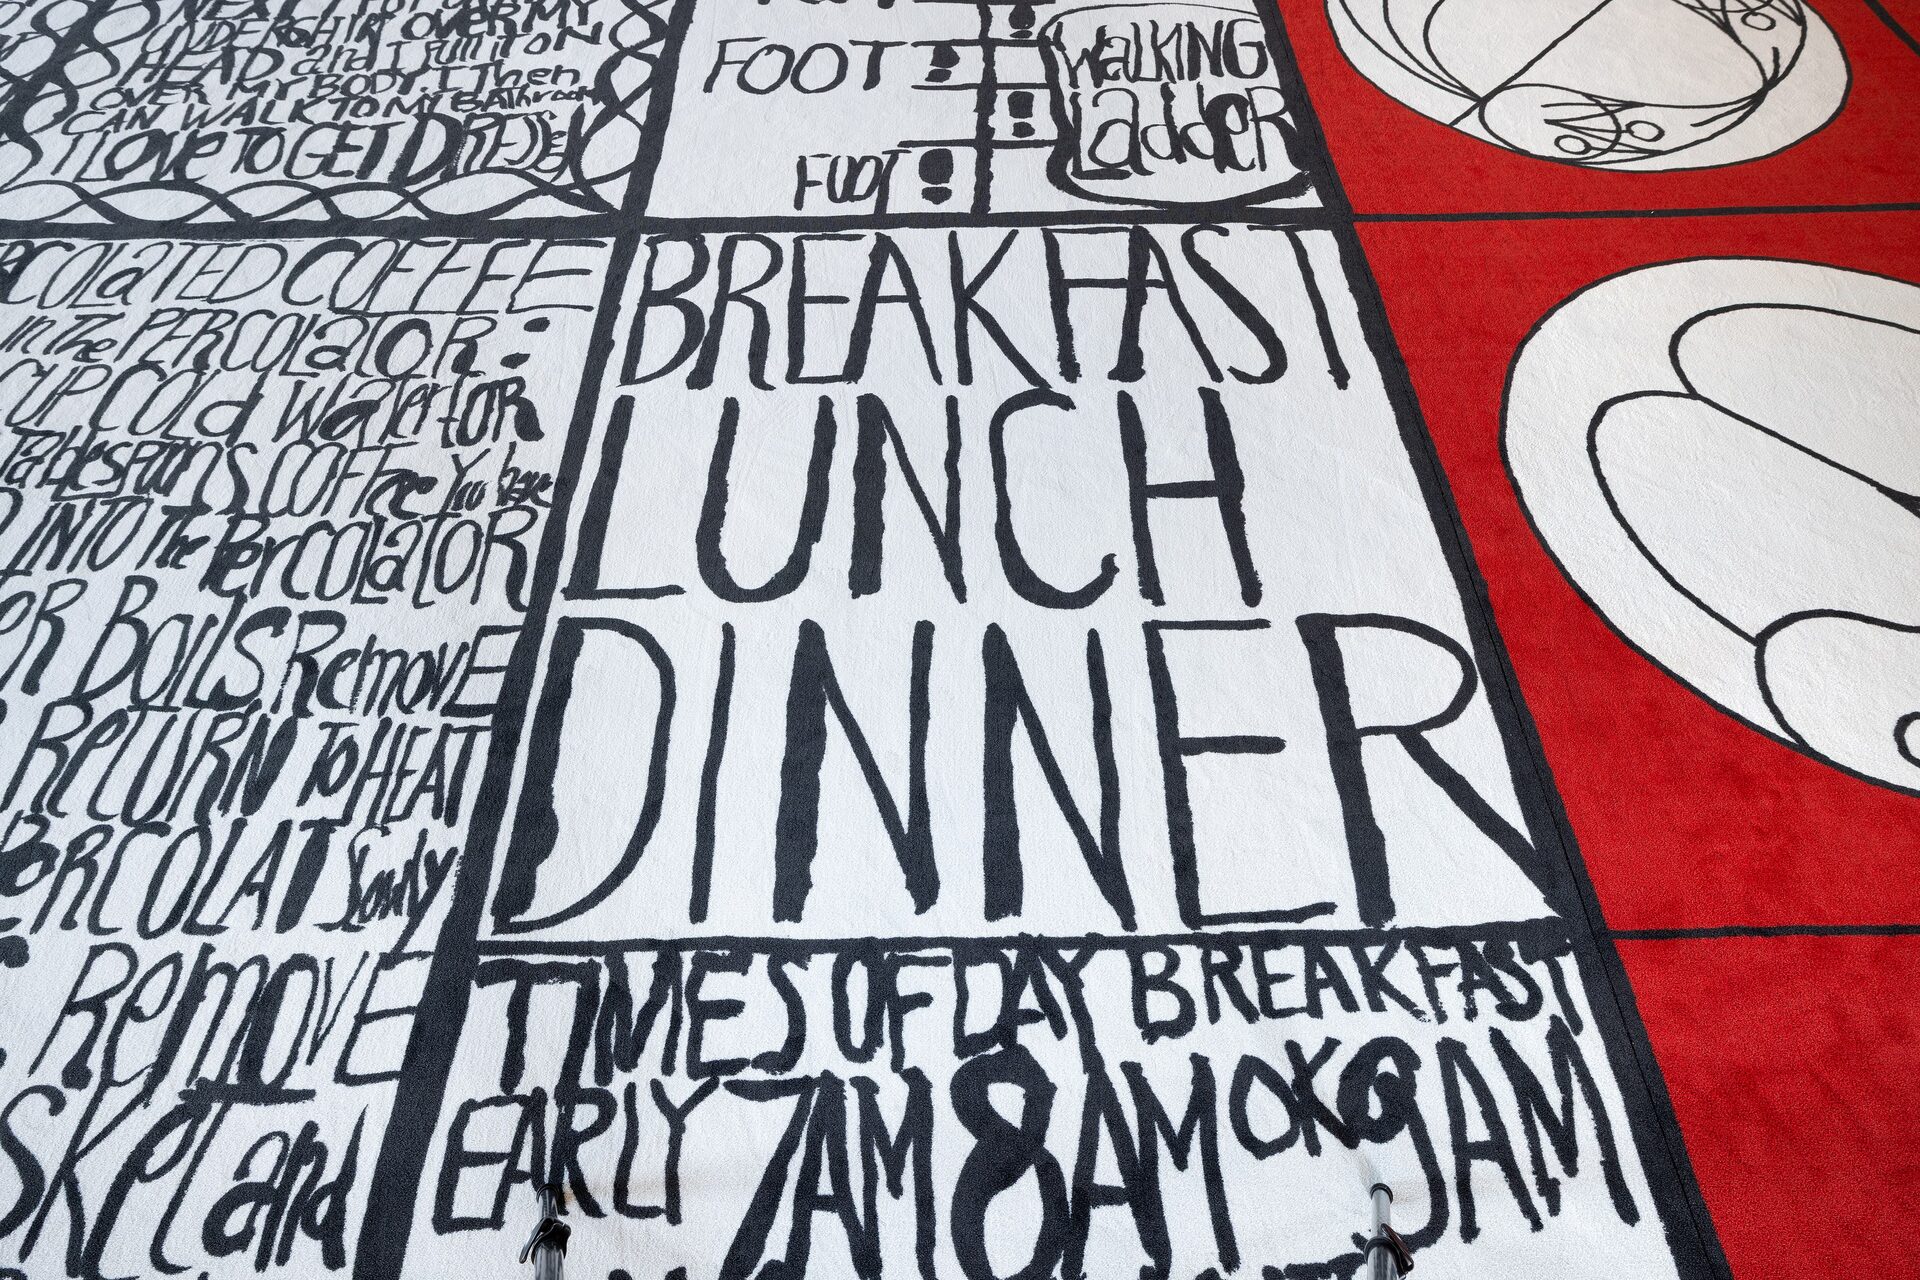 OVER MY
UNDERSHIRT
HEAD and I PULL IT ON
OVER MY BODY. I Then
CAN WALK TO MY BAThroom
I LOVE TO GET DRESSED
FOOT
FOOT
WALKING
LaddeR
COLaTED COFFEE
in the PERCOLaTOR:
CUP COLd WateR FOR
COFFee You have
INTO the PerCOLaTOR
OR BOiLS RemovE
ReTURN TO HEAT
PeRCOLAT Slowly
RemovE
and
BREAKFAST
LUNCH
DINNER
TIMES OF DAY BREAKFAST
EARLY 7AM 8AM OK 9AM